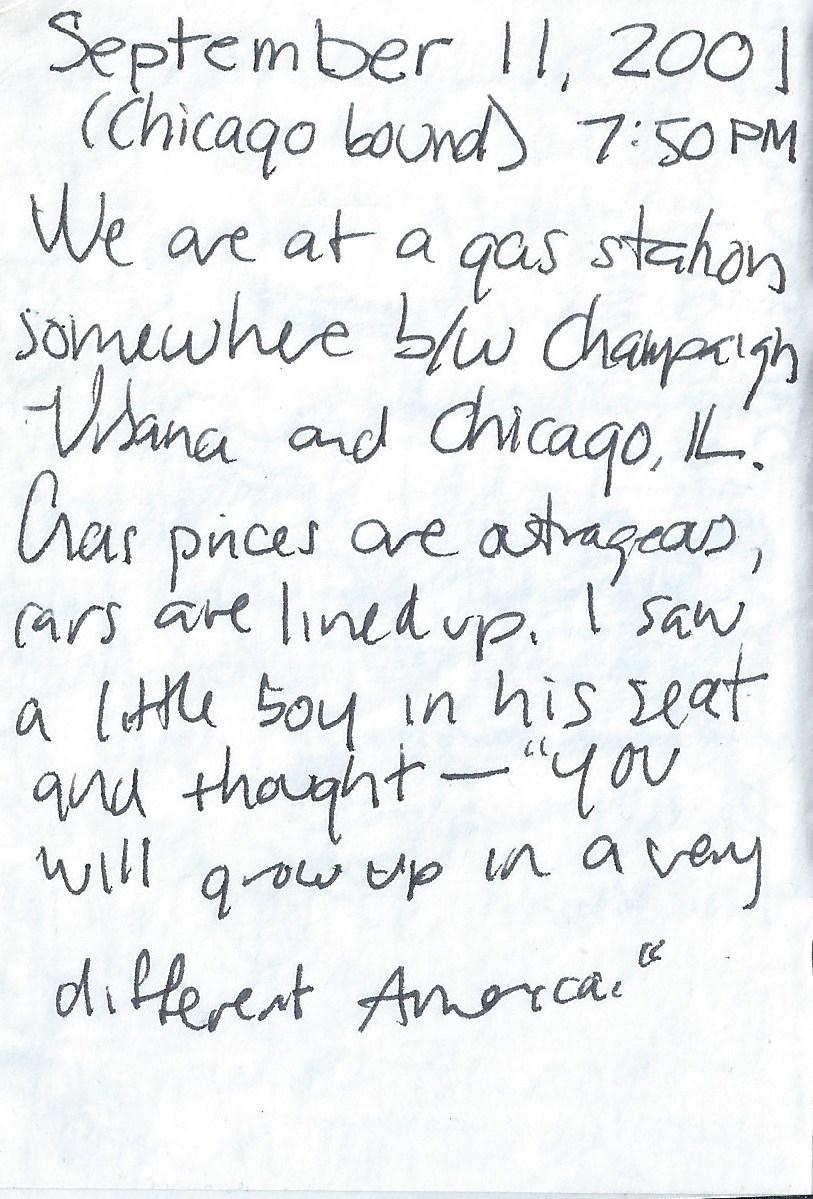 September 11, 2001
(Chicago bound) 7:50 PM
We are at a gas station
somewhere b/w Champaign
-Urbana and Chicago, IL.
Gas prices are outrageous,
cars are lined up. I saw
a little boy in his seat
and thought — "you
will grow up in a very
different America."